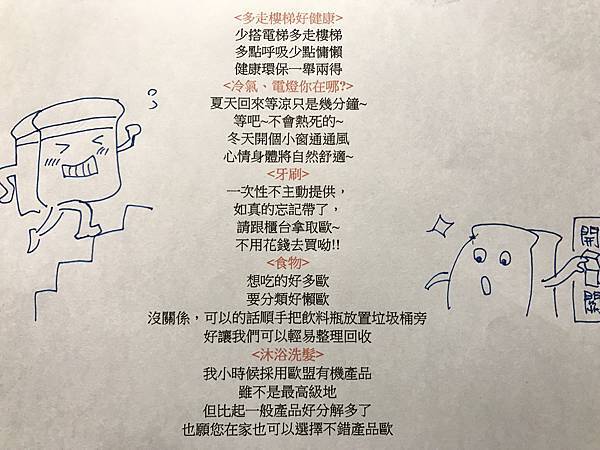 <多走樓梯好健康>
少搭電梯多走樓梯
多點呼吸少點慵懶
健康環保一舉兩得
<冷氣、電燈你在哪?>
夏天回來等涼只是幾分鐘~
等吧~不會熱死的~
冬天開個小窗通通風
心情身體將自然舒適~
<牙刷>
一次性不主動提供，
如真的忘記帶了，
請跟櫃台拿取歐~
不用花錢去買呦!!
<食物>
想吃的好多歐
要分類好懶歐
沒關係，可以的話順手把飲料瓶放置垃圾桶旁
好讓我們可以輕易整理回收
<沐浴洗髮>
我小時候採用歐盟有機產品
雖不是最高級地
但比起一般產品好分解多了
也願您在家也可以選擇不錯產品歐
開
關